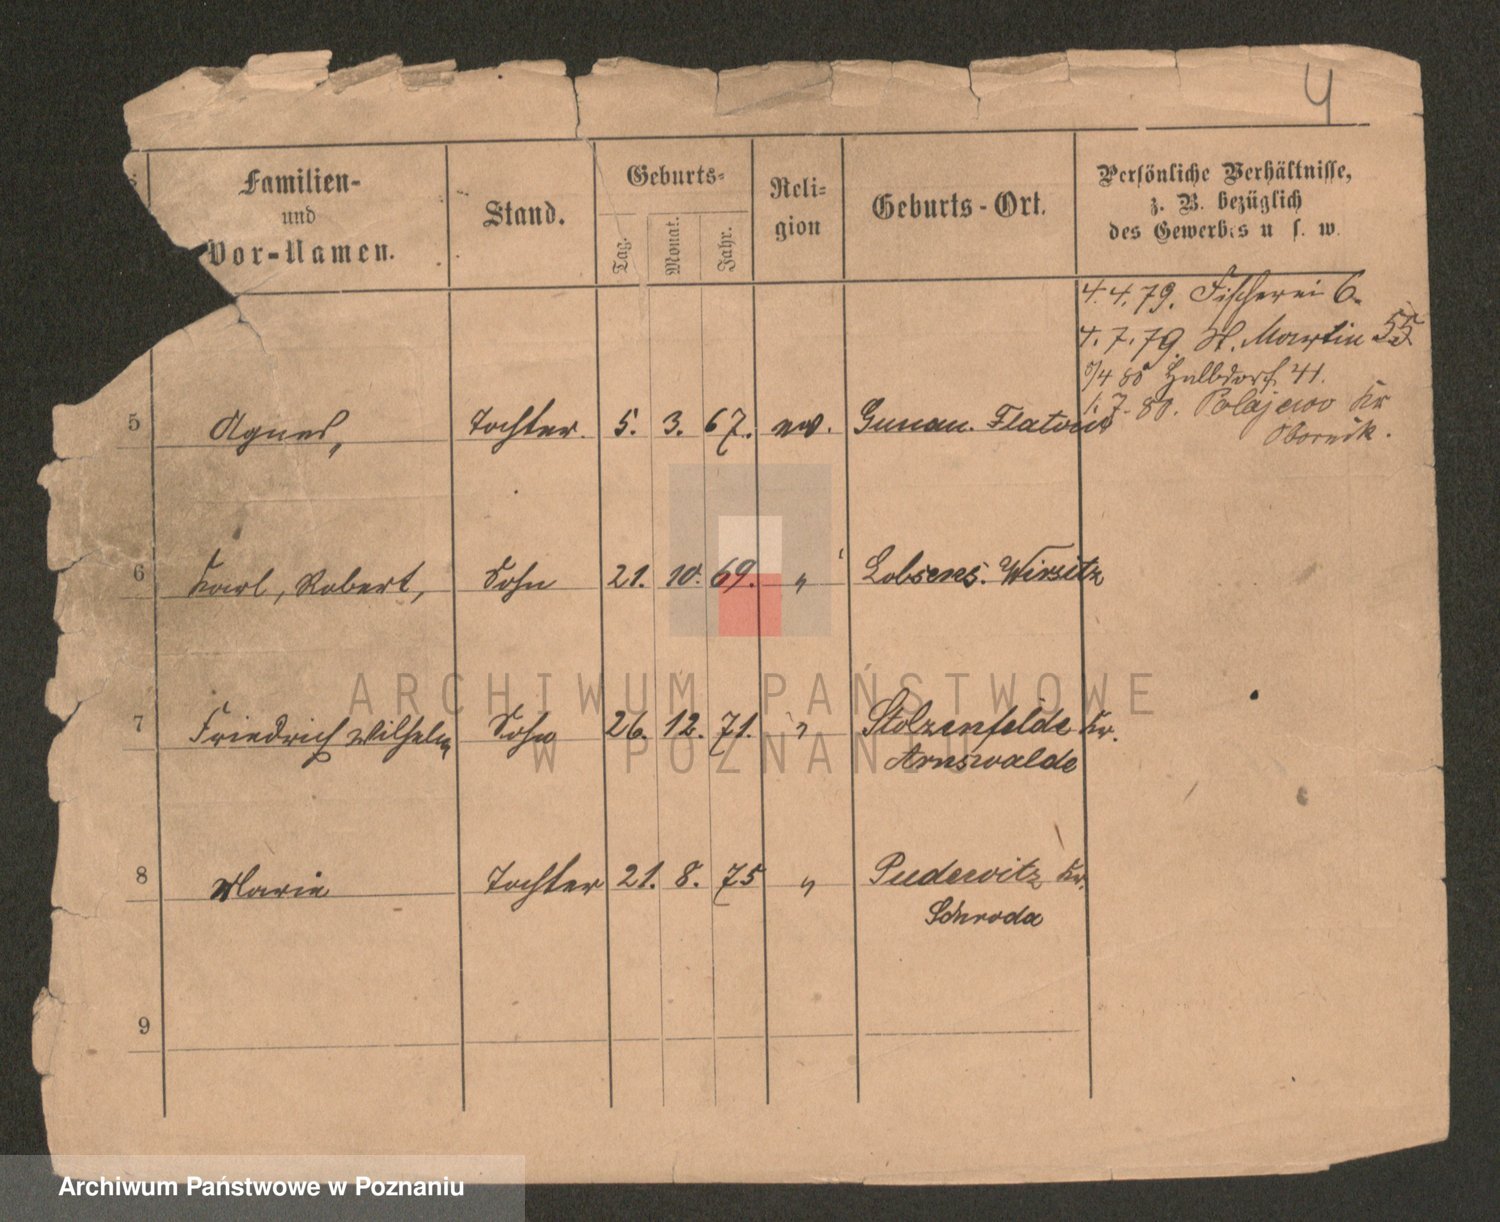 4
Familien-
und
Vor-Namen.
Stand.
Geburts-
Tag.
Monat.
Jahr.
Reli-
gion
Geburts-Ort.
Persönliche Verhältnisse,
z. B. bezüglich
des Gewerbes u. s. w.
4.4.79. Fischerei 6.
4.7.79. St. Martin 55
/4 80 Halbdorf 41.
1.7.80. Polajewo Kr
Obornik.
5 Agnes, Tochter. 5. 3. 67. ev. Flatow
6 Karl, Robert, Sohn 21. 10. 69. " Lobsens. Wirsitz
7 Friedrich Wilhelm Sohn 26. 12. 71. " Stolzenfelde Kr.
Arnswalde
8 Marie Tochter 21. 8. 75 " Pudewitz Kr.
Schroda
9
ARCHIWUM PAŃSTWOWE
W POZNANIU
Archiwum Państwowe w Poznaniu